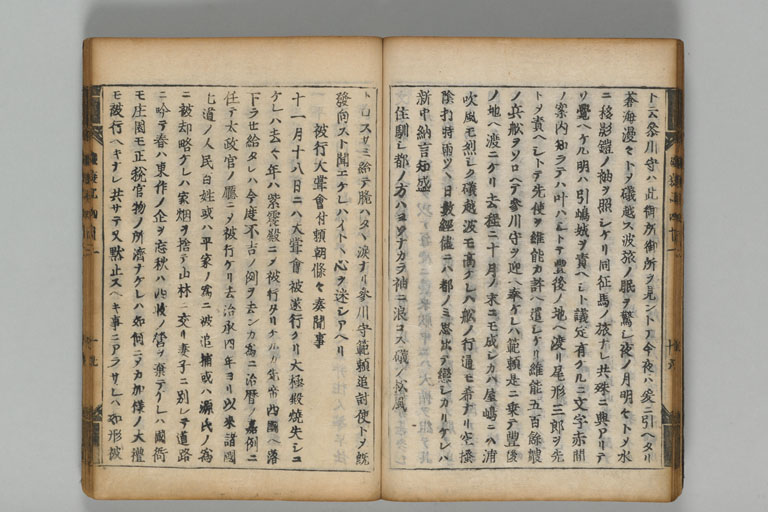 ト云参川守ハ此御所御所ヲ見ントテ今夜ハ爰ニ引ヘタリ
蒼海漫々トメ礒越ス波旅ノ眠ヲ驚シ夜ノ月明々トメ水
ニ移影鎧ノ袖ヲ照シケリ同征馬ノ旅ナレ共殊ニ興アリテ
ソ覺ヘケル明ハ引嶋城ヲ責ヘシト議定有ケルニ文字赤間
ノ案内知ラテハ叶ハシトテ豊後ノ地ヘ渡リ尾形三郎ヲ先
トメ責ヘシトテ先使ヲ維能カ許ヘ遣シケリ維能五百餘艘
ノ兵舩ヲソロヘテ参川守ヲ迎ヘ奉ケレハ範頼是ニ乗テ豊後
ノ地ヘ渡ニケリ去程ニ十月ノ末ニモ成シカハ屋嶋ニハ浦
吹風モ烈シク礒越波モ高ケレハ舩ノ行通モ希ナリ空搔
陰打時雨ツヽ日數經儘ニハ都ノミ思出テ戀シカリケレハ
新中納言知盛
住馴シ都ノ方ハヨソナカラ袖ニ浪コス礒ノ松風
ト口スサミ給テ脆ハタヽ涙ナリ参川守範頼追討使トメ既
發向スト聞エケレハイトヽ心ヲ迷シアヘリ
被行大甞會付頼朝條々奏聞事
十一月十八日ニハ大甞會被遂行ケリ大極殿燒失シニ
ケレハ去々年ハ紫震殿ニメ被行タリケルカ先帝西國ヘ落
下ラセ給タレハ今度不吉ノ例ヲ去ンカ為ニ治暦ノ嘉例ニ
任テ太政官ノ廳ニメ被行ケリ去治承四年ヨリ以来諸國
七道ノ人民白姓或ハ平家ノ為ニ被追捕或ハ源氏ノ為
ニ被却略ケレハ家烟ヲ捨テ山林ニ交リ妻子ニ別レテ道路
ニ吟テ春ハ東作ノ企ヲ忘秋ハ西收ノ營ヲ棄テケレハ國衙
モ庄園モ正稅官物ノ所濟ナケレハ如何ニメカ加樣ノ大禮
モ被行ヘキナレ共サテ又默止スヘキ事ニアラサレハ如形被